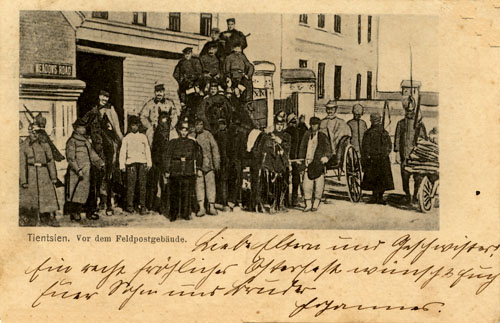 MEADOWS ROAD
Tientsien. Vor dem Feldpostgebäude.
Liebe Eltern und Geschwister
Ein recht fröhliches Osterfest wünscht Euch
Euer Sohn und Bruder
Johannes.